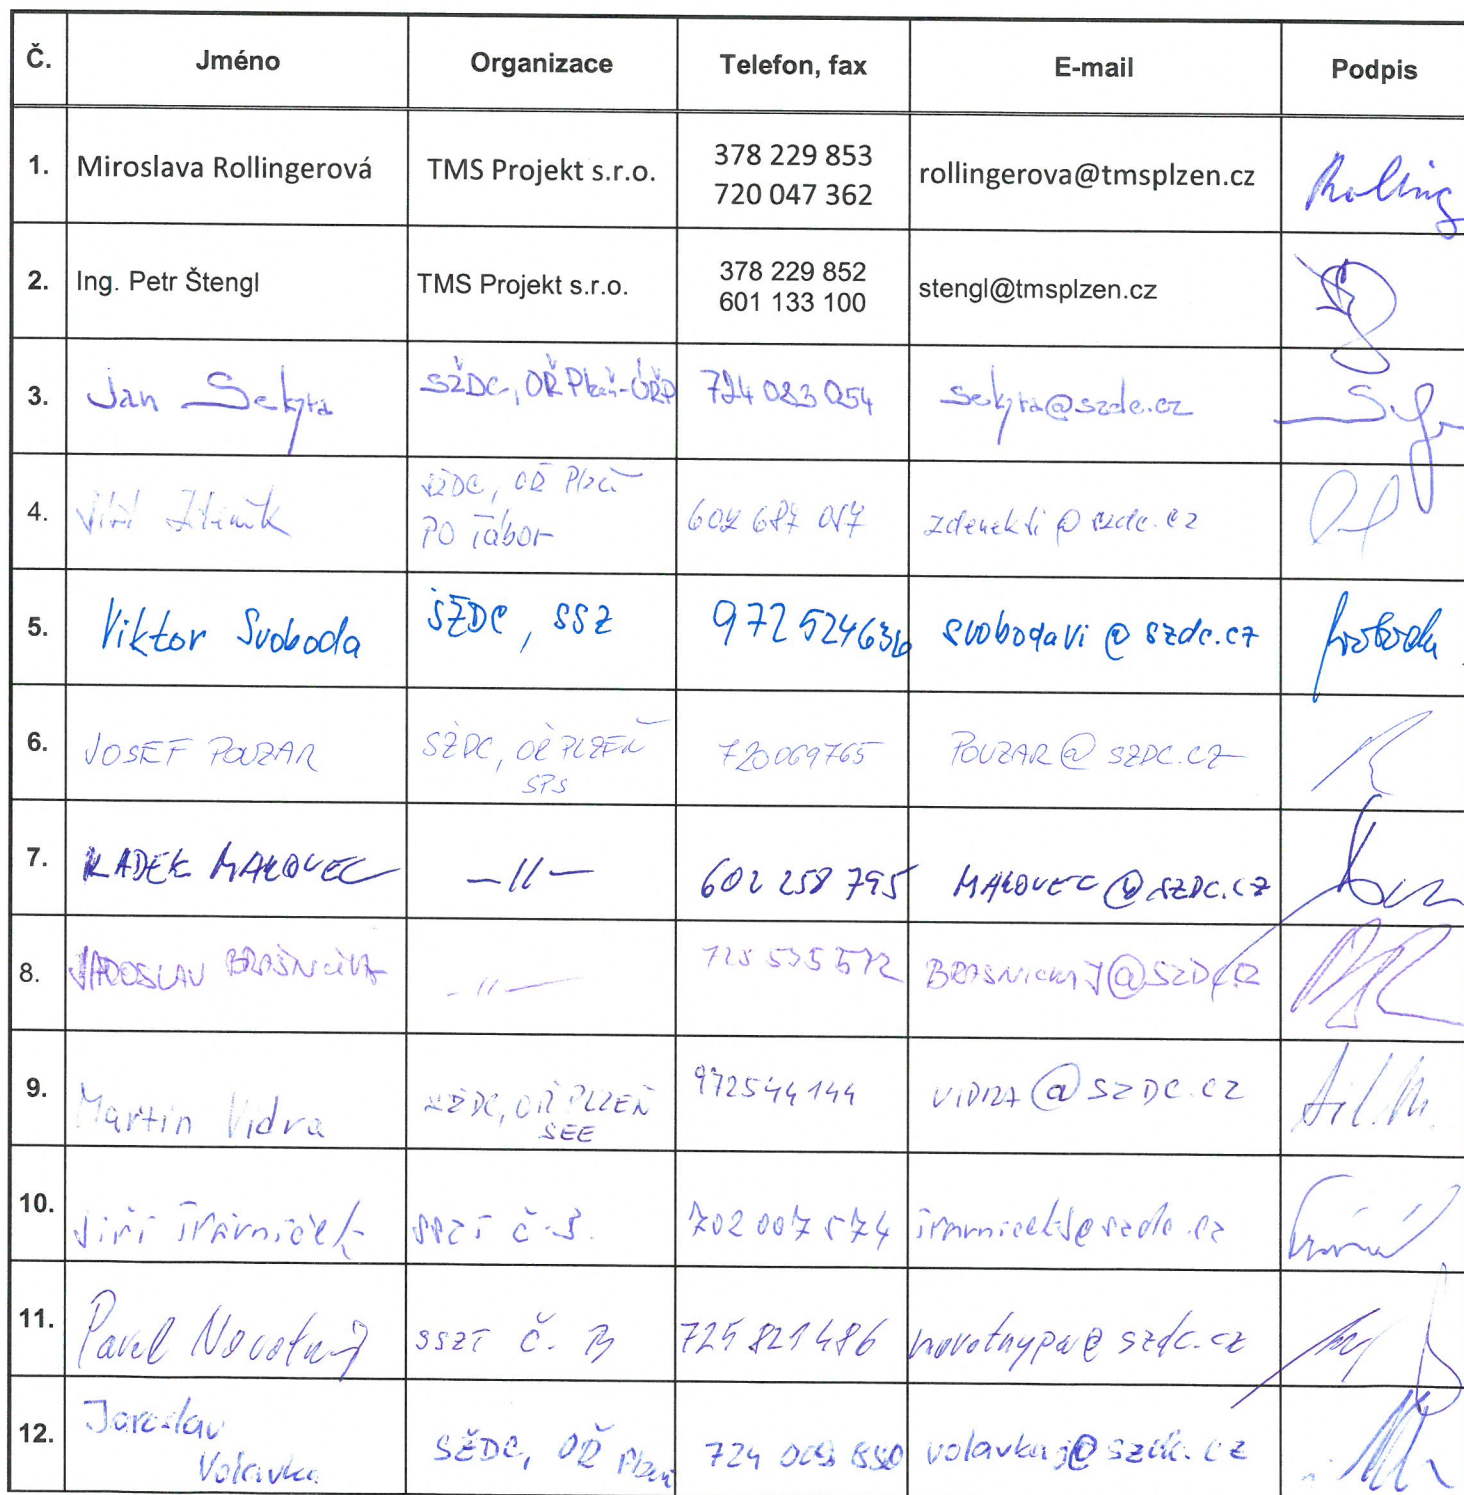 Č. Jméno Organizace Telefon, fax E-mail Podpis
1. Miroslava Rollingerová TMS Projekt s.r.o. 378 229 853 rollingerova@tmsplzen.cz Roling
720 047 362
2. Ing. Petr Štengl TMS Projekt s.r.o. 378 229 852 stengl@tmsplzen.cz
601 133 100
3. Jan Sekyra SŽDC, OŘ Plzeň-ÚŘP 724 083 054 sekyra@szdc.cz
4. Jiří Zdeněk SŽDC, OŘ Plzeň 602 687 017 zdenekji@szdc.cz
PO Tábor
5. Viktor Svoboda SŽDC, SSZ 972 524 636 svobodavi@szdc.cz Svoboda
6. JOSEF POUZAR SŽDC, OŘ PLZEŇ 720069765 POUZAR@SZDC.CZ
SPS
7. RADEK MAKOVEC —//— 602 258 795 MAKOVEC@SZDC.CZ
8. JAROSLAV —//— 725 535 572
9. Martin Vidra SŽDC, OŘ PLZEŇ 972544144 VIDRA@SZDC.CZ
SEE
10. Jiří Trávníček SSZT Č. 702 007 574 travnicekj@szdc.cz
11. Pavel Novotný SSZT Č. B 725 821 486 novotnypa@szdc.cz
12. Jaroslav
Volavka SŽDC, OŘ Plzeň 724 volavkaj@szdc.cz